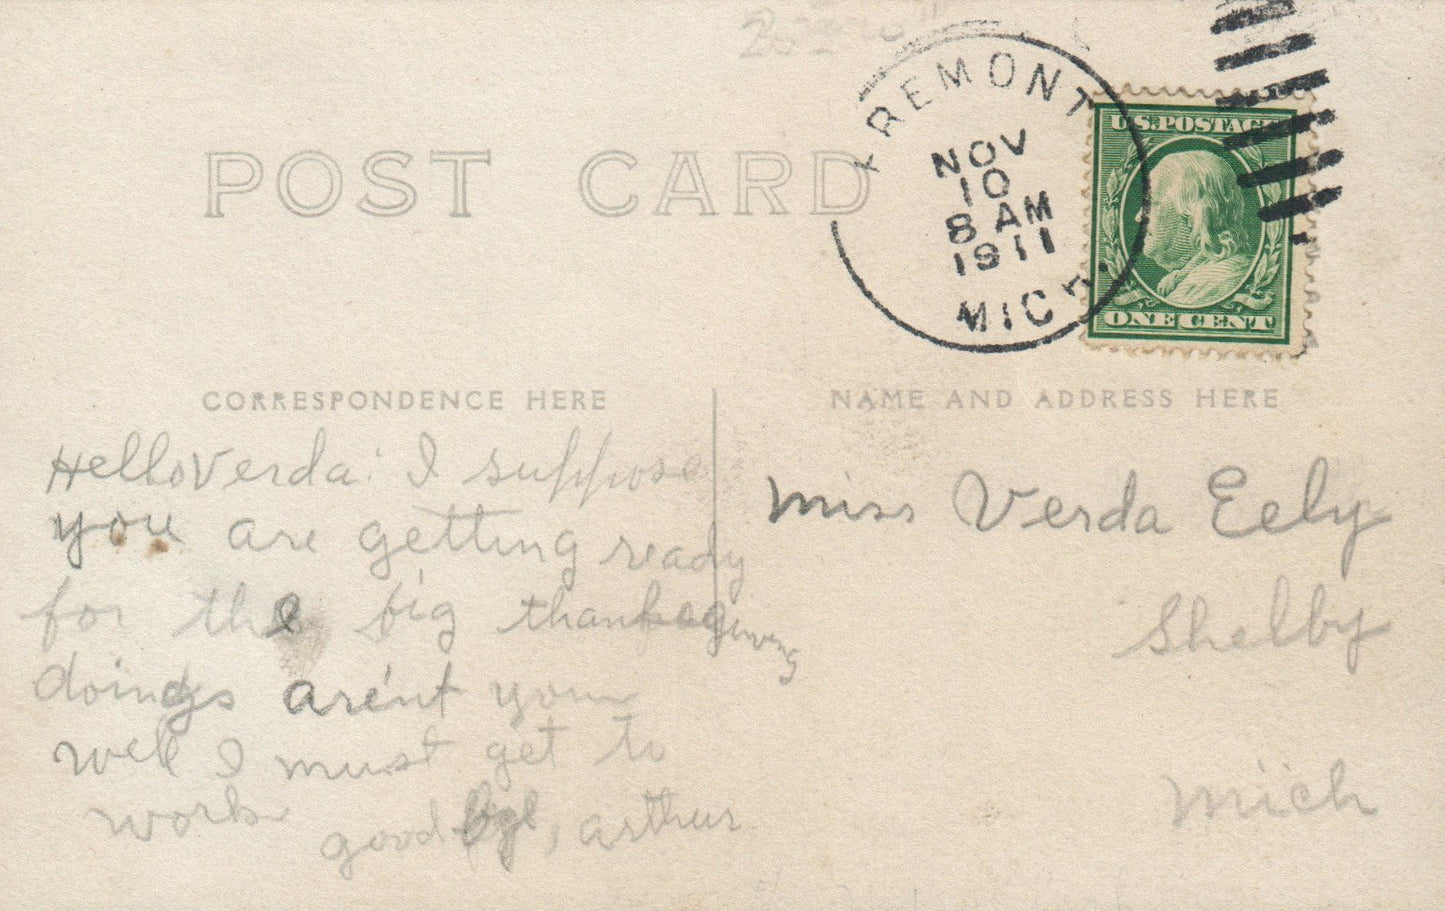 FREMONT
NOV
10
8 AM
1911
MICH.
U.S. POSTAGE
ONE CENT
POST CARD
CORRESPONDENCE HERE
NAME AND ADDRESS HERE
Hello Verda: I suppose
you are getting ready
for the big thanksgiving
doings are'nt you
well I must get to
work
good bye, arthur
Miss Verda Eely
Shelby
Mich